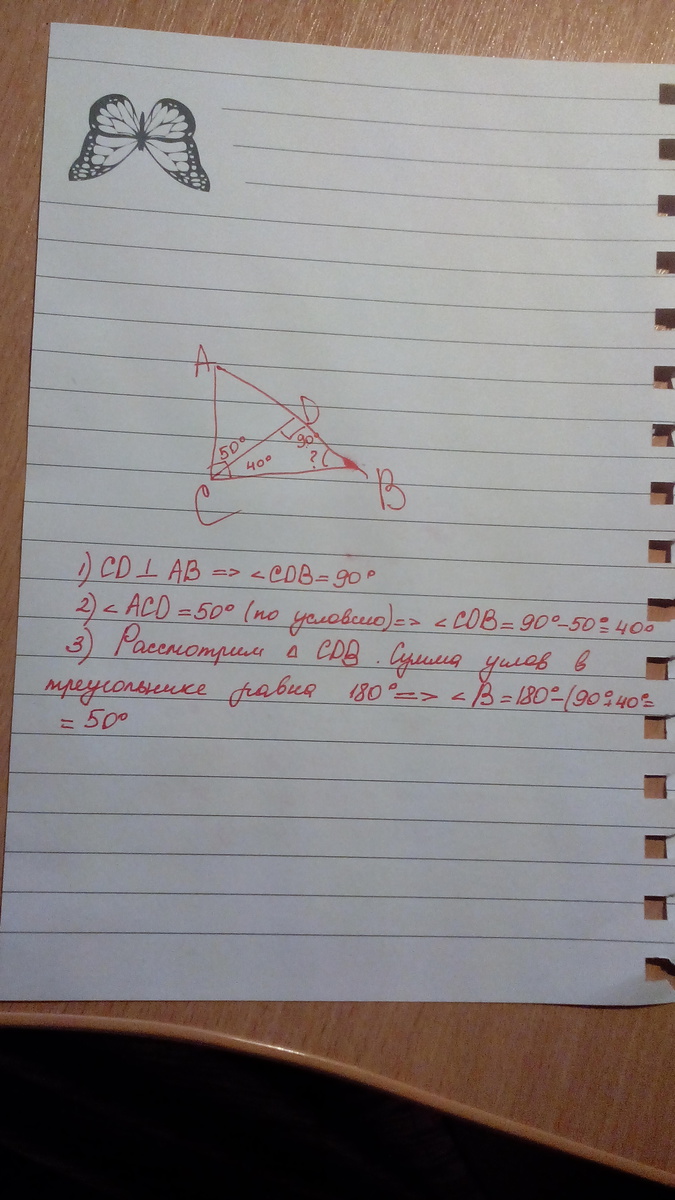 A
D
50°
90°
40°
?
C
B
1) CD ⊥ AB => ∠CDB = 90°
2) ∠ACD = 50° (по условию) => ∠CDB = 90°-50°=40°
3) Рассмотрим Δ CDB. Сумма углов в
треугольнике равна 180° => ∠B = 180°-(90°+40°=
= 50°